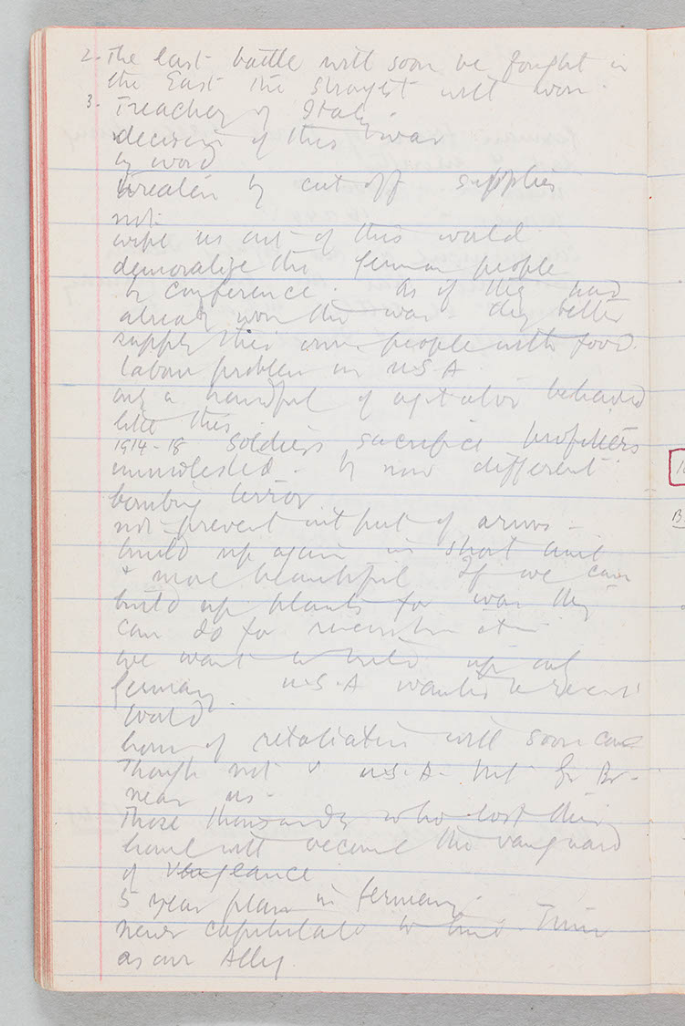 2. The last battle will soon be fought in
the East the strongest will won.
3. Treachery of Italy.
decision of this war
by word
threaten by cut off supplies
not.
wipe us out of this world
demoralize the german people
by conference. As if they had
already won the war they better
supply their own people with food.
labour problem in U.S.A
only a handful of agitator behaved
like this
1914-18 soldiers sacrifice profiteers
unmolested. by now different
bombing terror
not prevent output of arms -
build up again in short time
& more beautiful If we can
build up plants for war they
can do for
we want to build up our
germany. U.S.A wanted to
world
hour of retaliation will soon come
Though not U.S.A. but Gr Br-
near us-
Those thousands who lost their
home will become the vanguard
of vengeance
5 year plan in Germany.
never capitulate to time. Time
as our Ally.